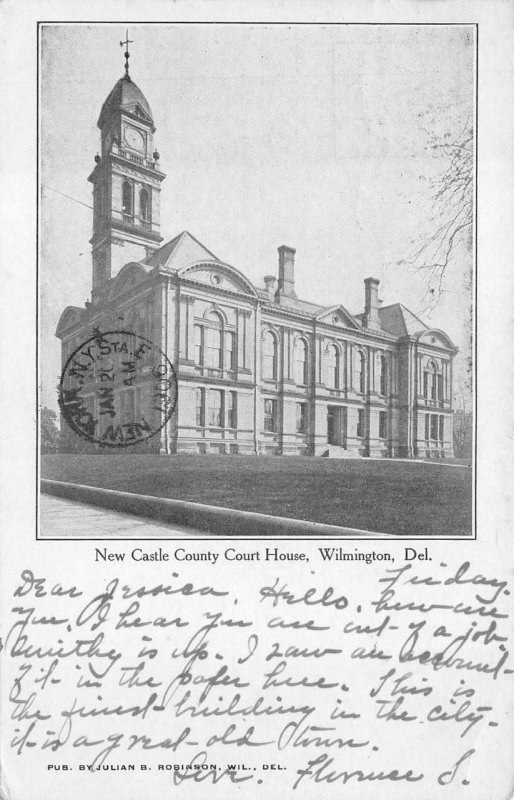 NEW YORK, N.Y. STA. E
JAN 2
AM
1906
New Castle County Court House, Wilmington, Del.
Friday.
Dear Jessica, Hello, how are
you. I hear you are out-of a job
Smithy is up. I saw an account-
of it- in the paper here. This is
the finest- building in the city.
it- is a great- old town.
PUB. BY JULIAN B. ROBINSON, WIL., DEL.
Love. Florence S.